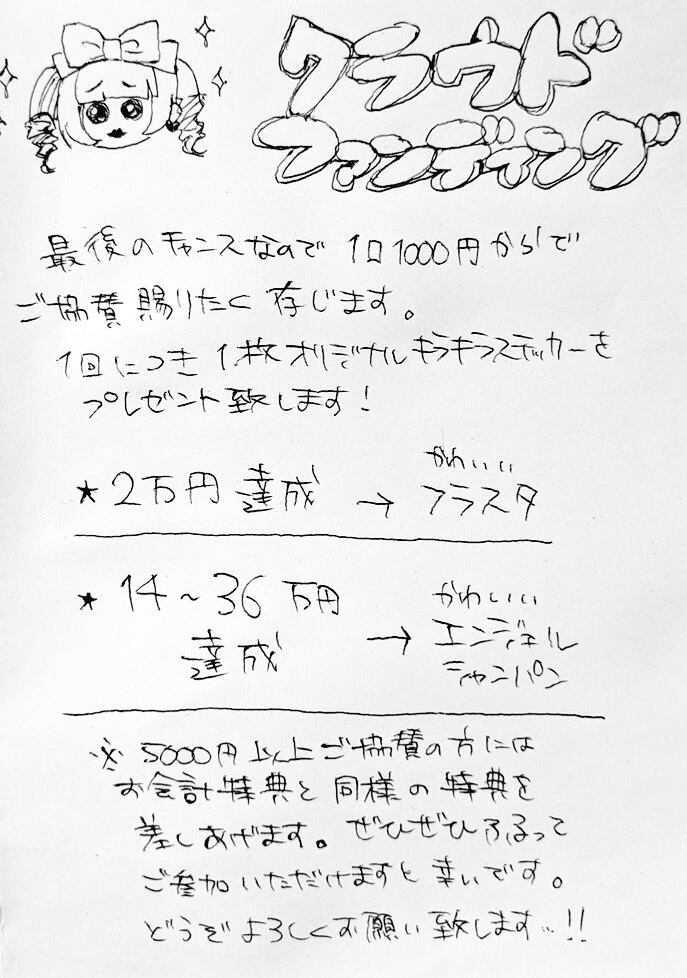 クラウド
ファンディング
最後のチャンスなので 1口1000円からで
ご協賛賜りたく存じます。
1回につき1枚オリジナルキラキラステッカーを
プレゼント致します!
★2万円達成 → かわいい
フラスタ
★14~36万円
達成 → かわいい
エンジェル
シャンパン
※5000円以上ご協賛の方には
お会計特典と同様の特典を
差しあげます。ぜひぜひふるって
ご参加いただけますと幸いです。
どうぞよろしくお願い致します…!!